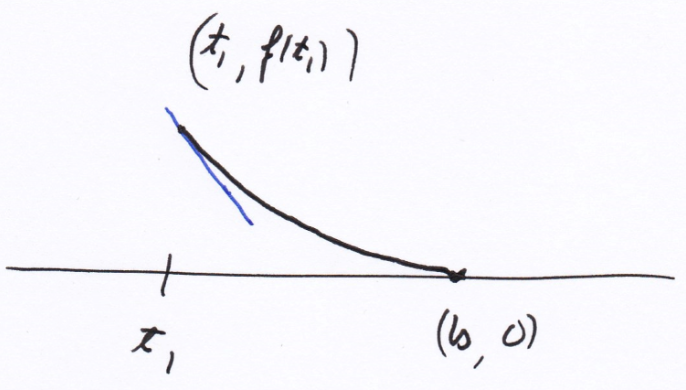 (t₁, f(t₁))
t₁
(b, 0)